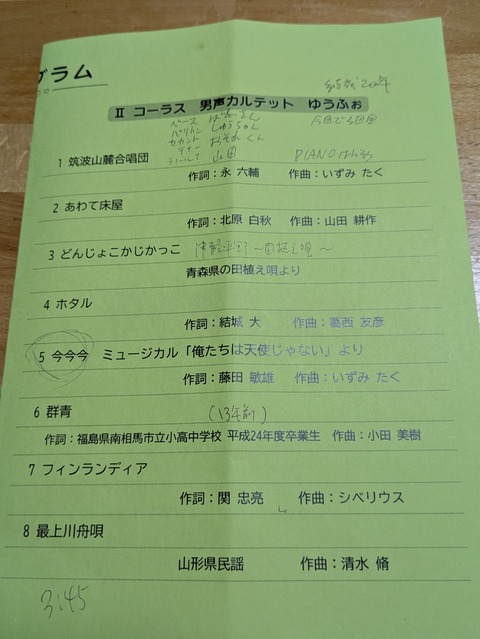 グラム
結成20年
Ⅱ コーラス 男声カルテット ゆうふぉ
ベース
バリトン しゅうちゃん
セカンド
山田
1 筑波山麓合唱団 PIANO
作詞：永 六輔 作曲：いずみ たく
2 あわて床屋
作詞：北原 白秋 作曲：山田 耕作
3 どんじょこかじかっこ 津軽平野～田植え唄～
青森県の田植え唄より
4 ホタル
作詞：結城 大 作曲：葛西 友彦
5 今今今 ミュージカル「俺たちは天使じゃない」より
作詞：藤田 敏雄 作曲：いずみ たく
6 群青 (13年前)
作詞：福島県南相馬市立小高中学校 平成24年度卒業生 作曲：小田 美樹
7 フィンランディア
作詞：関 忠亮 作曲：シベリウス
8 最上川舟唄
山形県民謡 作曲：清水 脩
3:45